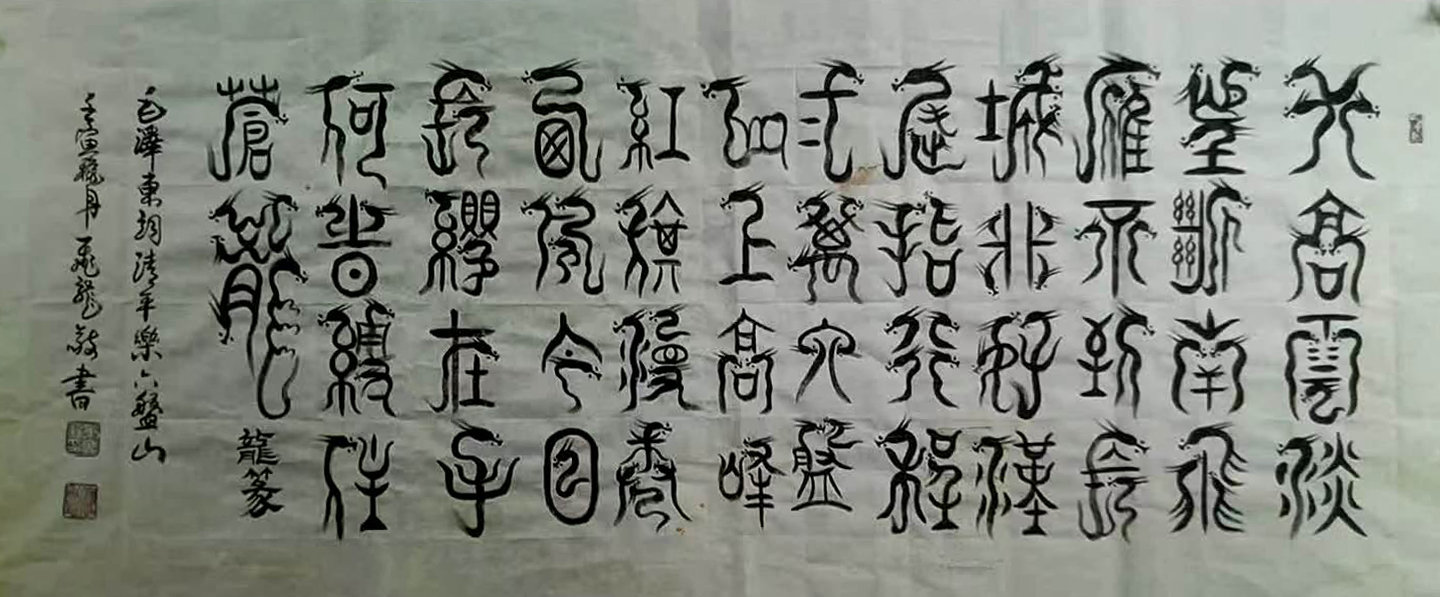 天高雲淡
望斷南飛
雁不到長
城非好漢
屈指行程
弍萬六盤
山上高峰
紅旗漫卷
西風今日
長纓在手
何時縛住
蒼龍 龍篆
毛澤東詞清平樂六盤山
壬寅月龍書